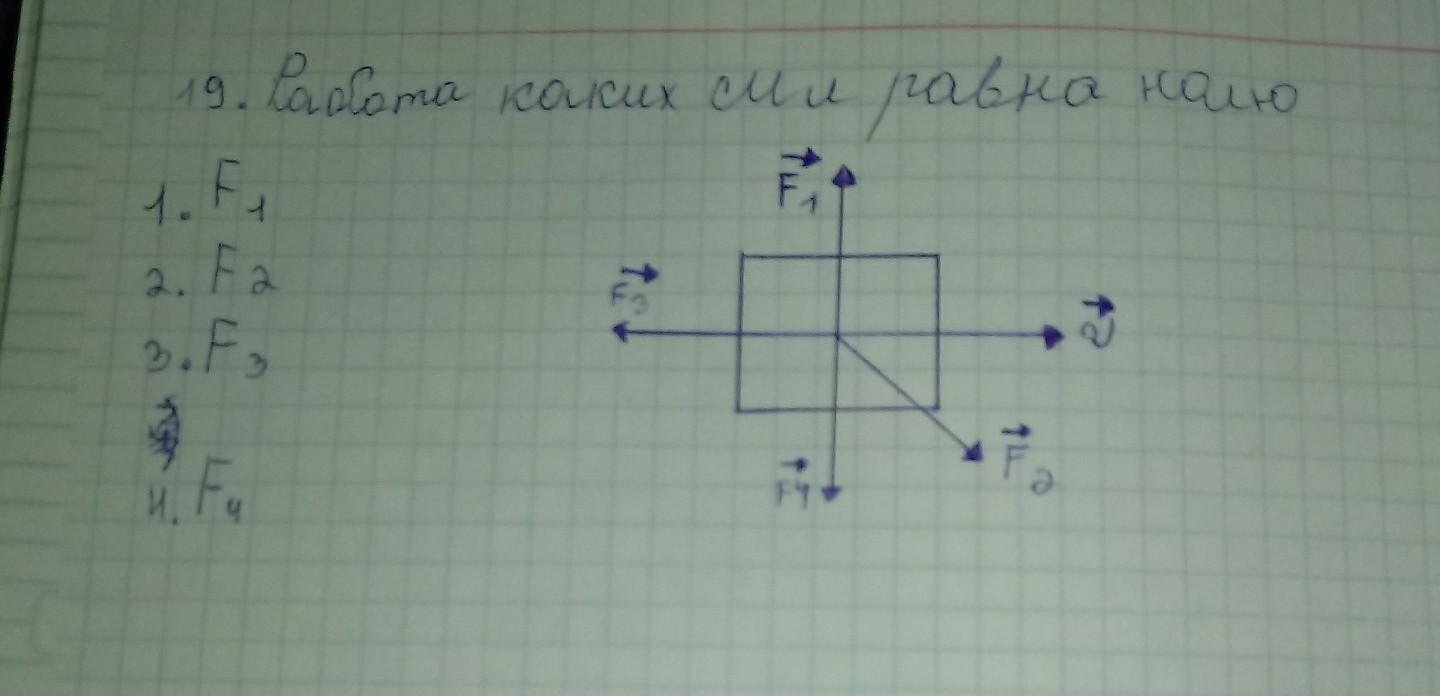 19. Работа каких сил равна нолю
1. F1
2. F2
3. F3
4. F4
F1
F3
v
F2
F4